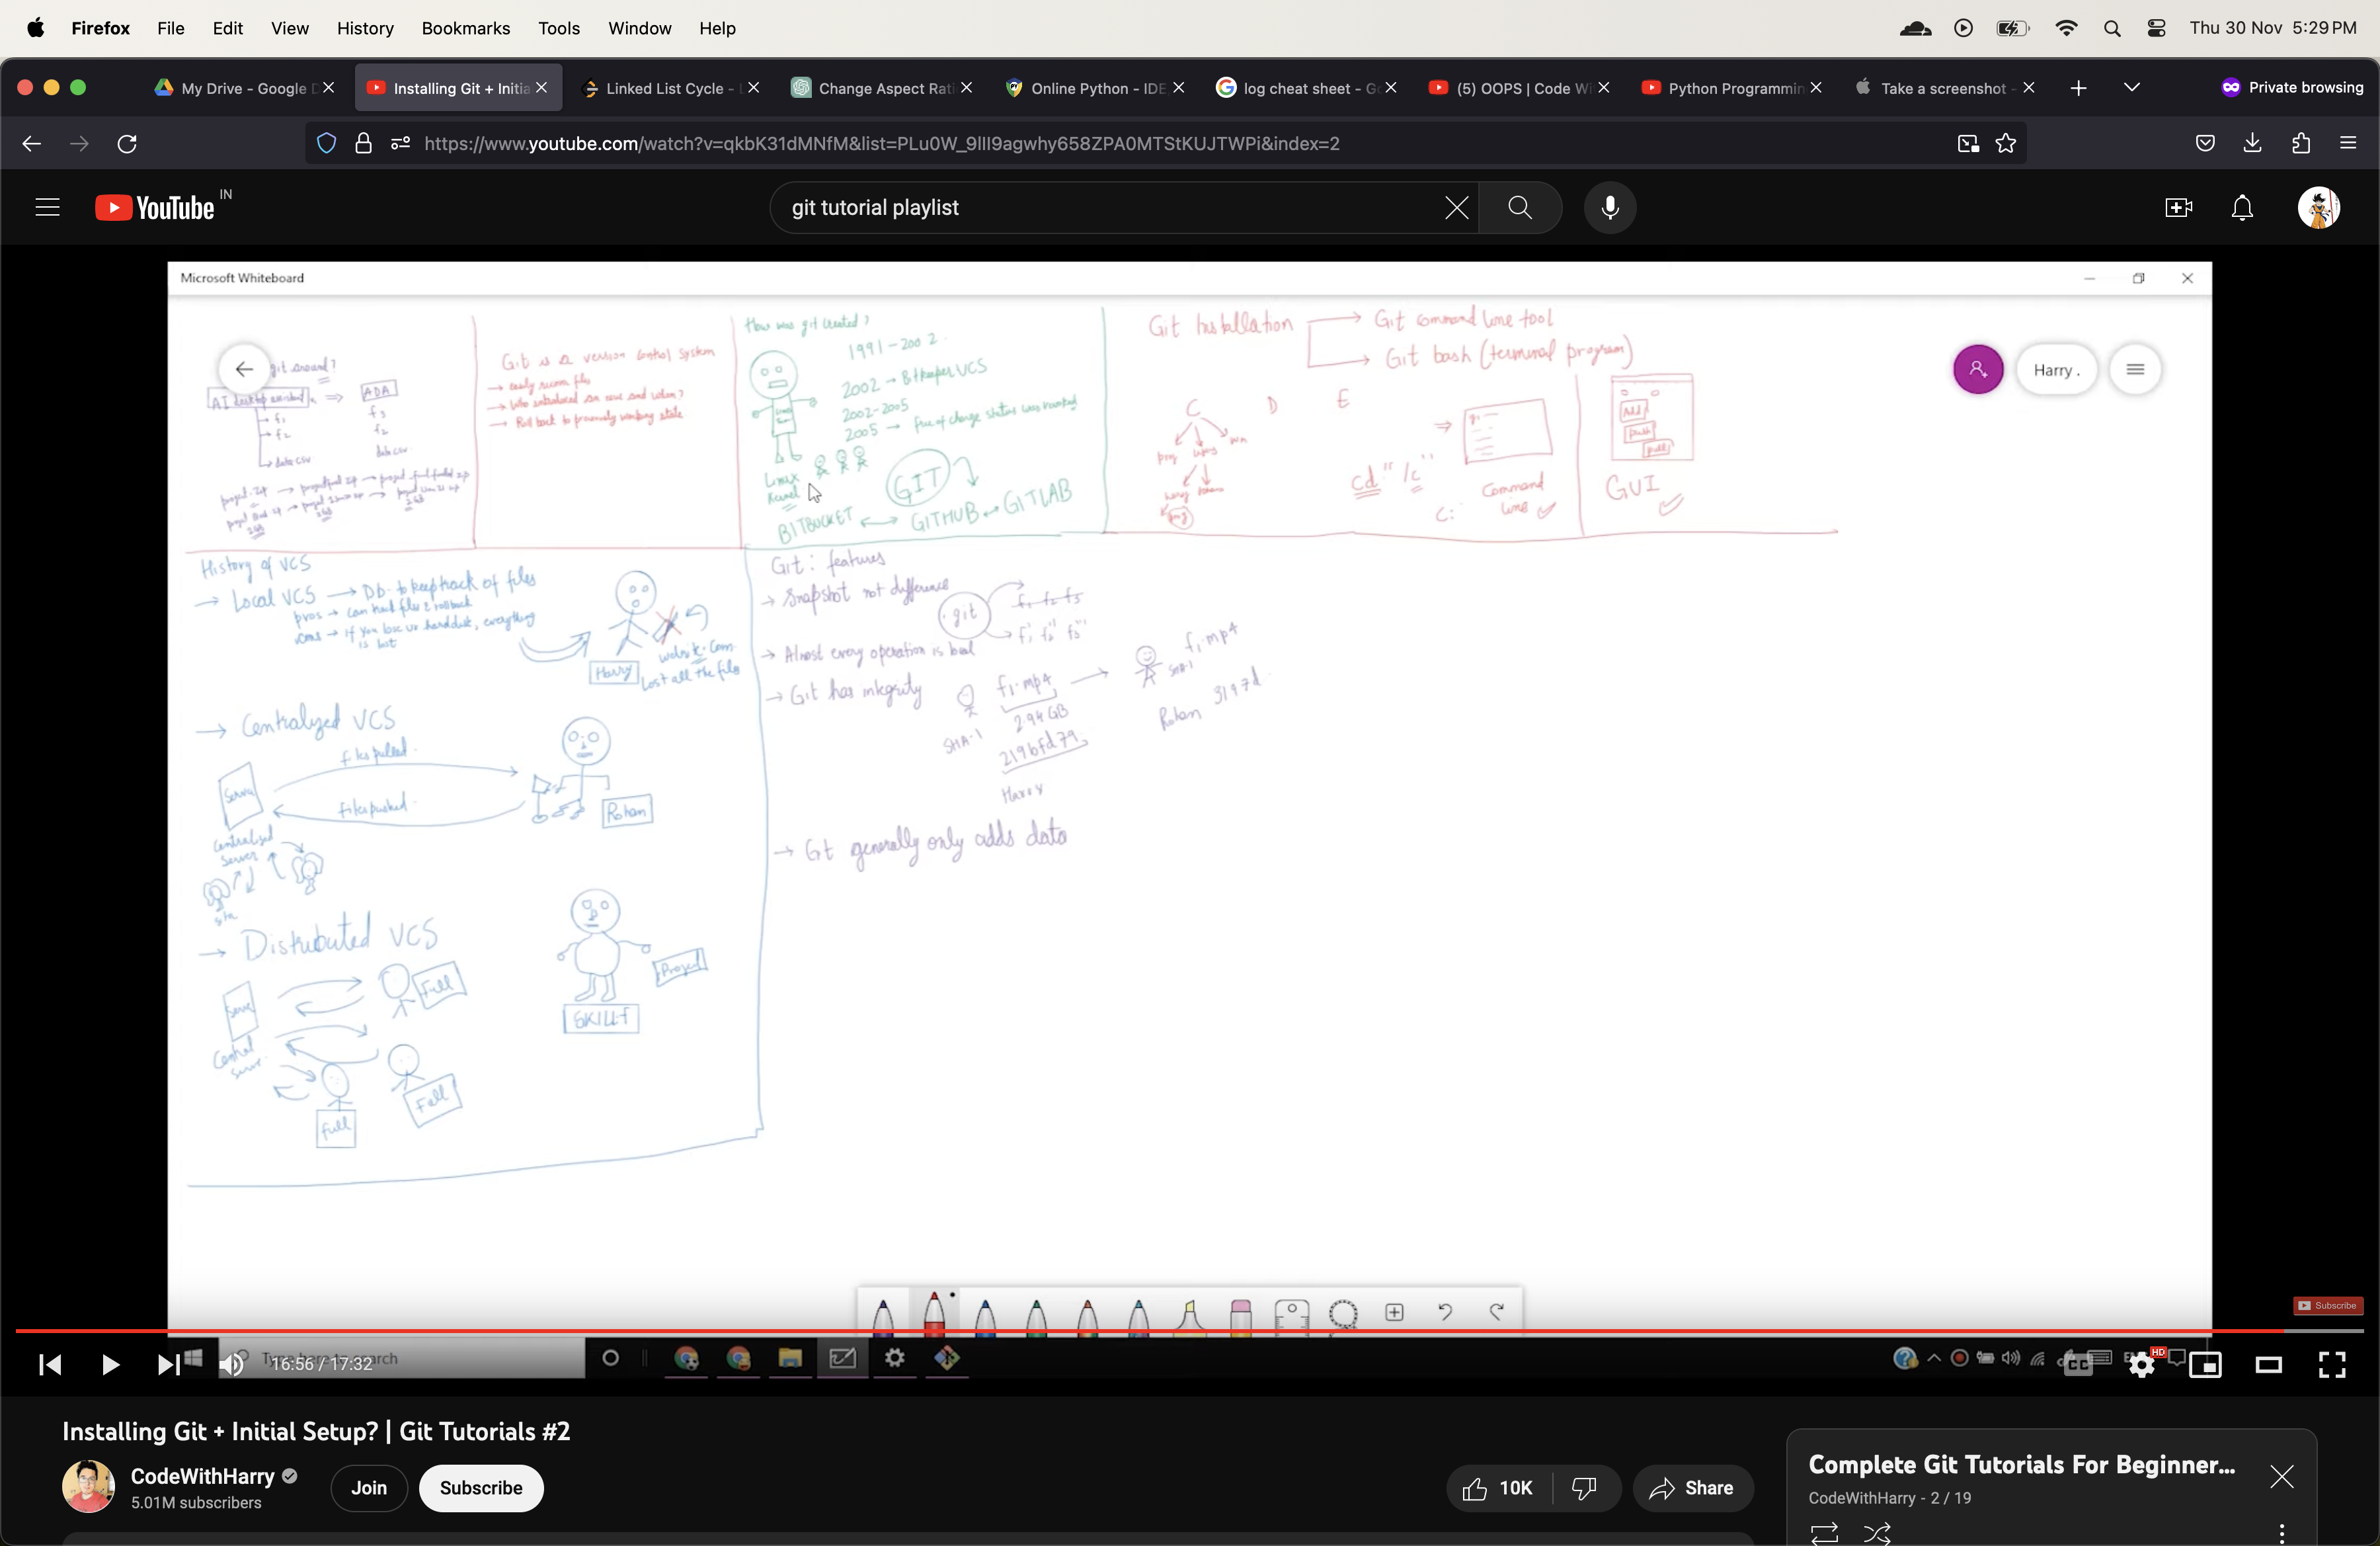 Firefox File Edit View History Bookmarks Tools Window Help
Thu 30 Nov 5:29 PM
My Drive - Google D
Installing Git + Initia
Linked List Cycle - L
Change Aspect Rati
Online Python - IDE
log cheat sheet - Go
(5) OOPS | Code Wi
Python Programmin
Take a screenshot -
Private browsing
https://www.youtube.com/watch?v=qkbK31dMNfM&list=PLu0W_9lII9agwhy658ZPA0MTStKUJTWPi&index=2
YouTube IN
git tutorial playlist
Microsoft Whiteboard
Harry .
git around?
AI desktop assistant
ADA
f1
f2
data csv
f3
f2
data csv
Git is a version control system
Who introduced an issue and when?
Roll back to previously working state
How was git created?
1991-2002
2002 → Bitkeeper VCS
2002-2005
2005 → free of charge status was revoked
Linux
Kernel
GIT
BITBUCKET ↔ GITHUB ↔ GITLAB
Git Installation
→ Git command line tool
→ Git bash (terminal program)
C D E
cd "/c"
C:
Command
line
Add
push
pull
GUI
History of VCS
→ Local VCS → Db to keep track of files
pros → can track files & rollback
cons → If you lose ur hard disk, everything
is lost
Harry
website.com
Lost all the files
→ Centralized VCS
files pulled
Server
files pushed
Rohan
Centralized
Server
→ Distributed VCS
Full
Project
SKILLF
Full
Full
Git: features
→ Snapshot not difference
.git
f1 f2 f3
→ Almost every operation is local
→ Git has integrity
f1.mp4
2.94 GB
SHA-1
219bfd79
Harry
f1.mp4
SHA-1
3197d
Rohan
→ Git generally only adds data
Subscribe
Type here to search
16:56 / 17:32
CC
HD
Installing Git + Initial Setup? | Git Tutorials #2
CodeWithHarry
5.01M subscribers
Join
Subscribe
10K
Share
Complete Git Tutorials For Beginner...
CodeWithHarry - 2 / 19